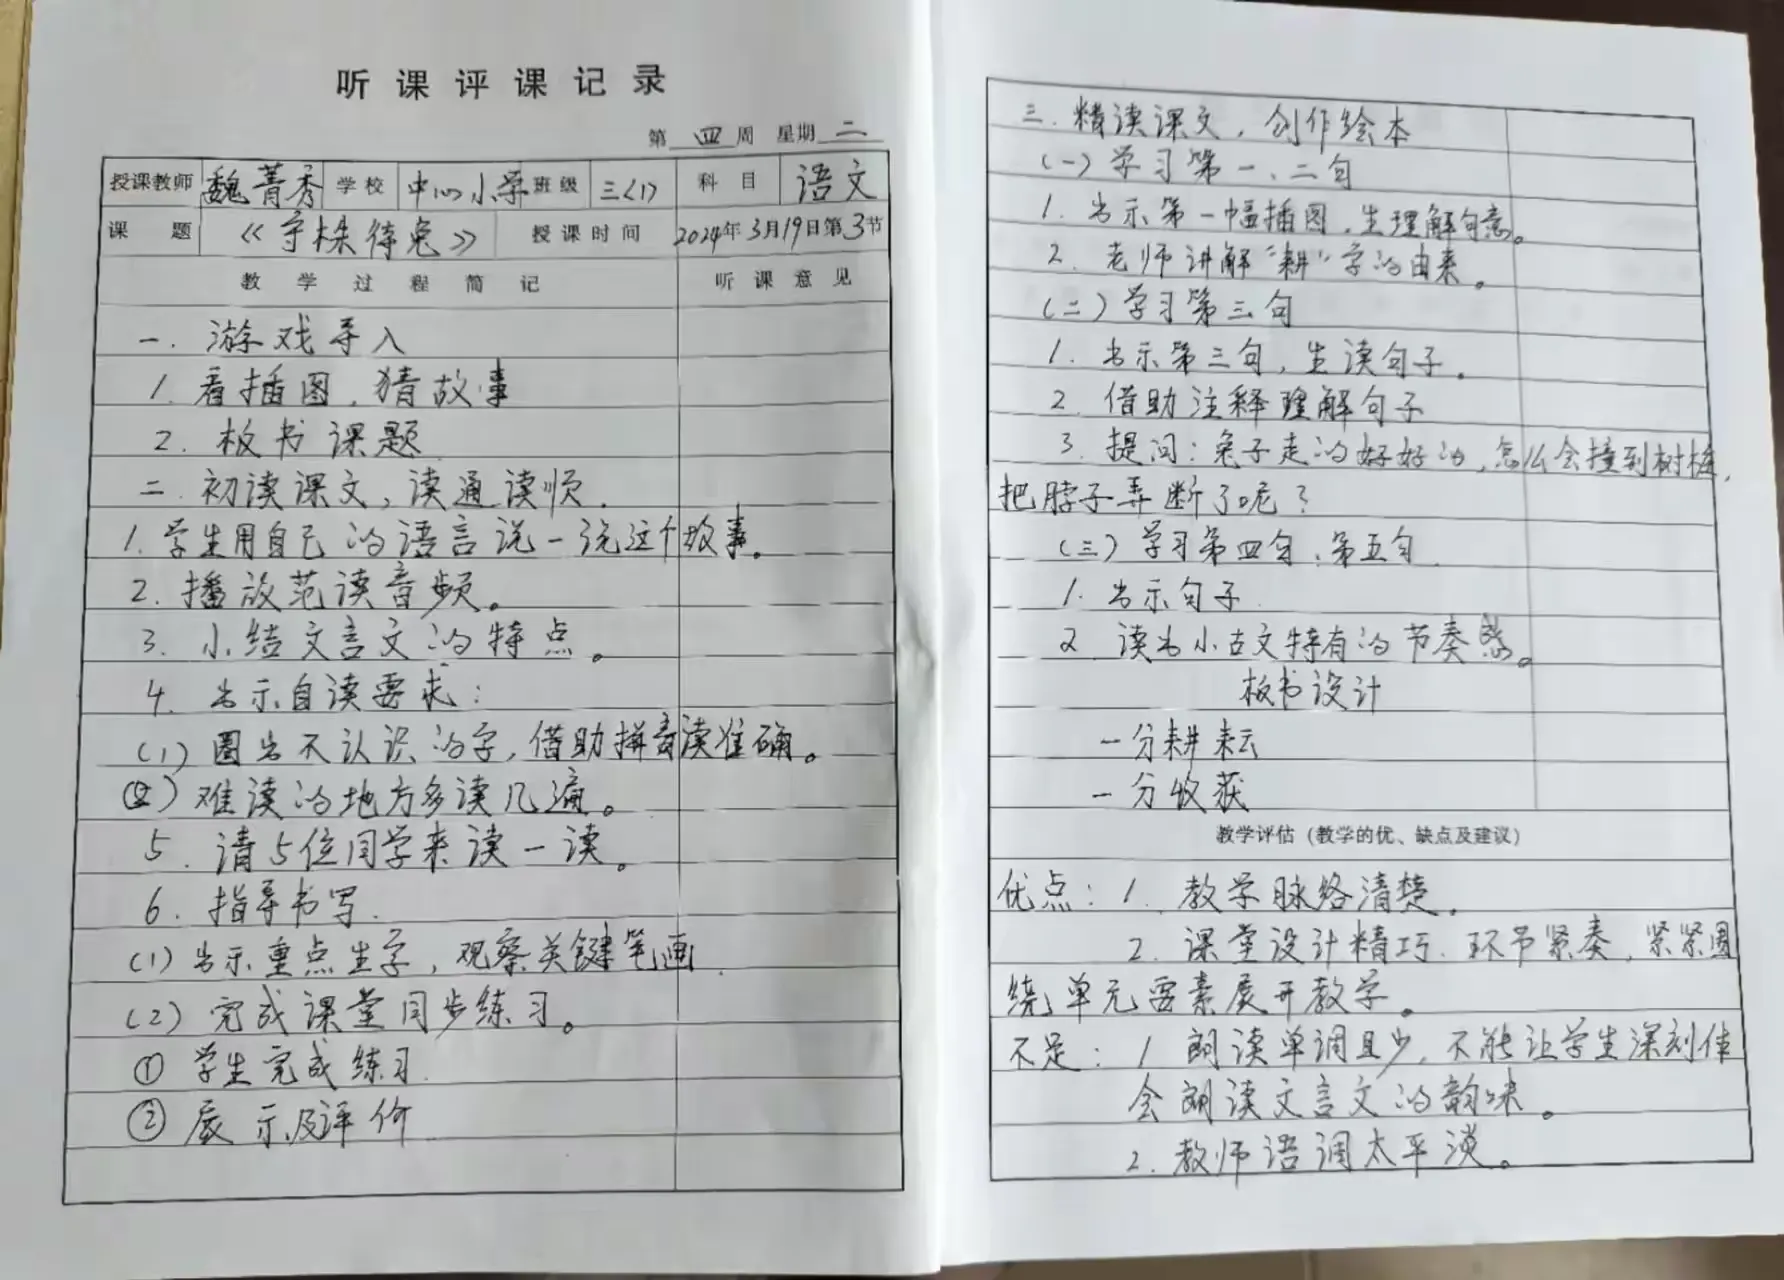 听课评课记录
第四周 星期二
授课教师 魏菁秀 学校 中心小学 班级 三(1) 科目 语文
课题 《守株待兔》 授课时间 2024年3月19日第3节
教学过程简记 听课意见
一. 游戏导入
1. 看插图,猜故事
2. 板书课题
二. 初读课文,读通读顺.
1. 学生用自己的语言说一说这个故事。
2. 播放范读音频。
3. 小结文言文的特点。
4. 出示自读要求:
(1) 圈出不认识的字,借助拼音读准确。
(2) 难读的地方多读几遍。
5. 请5位同学来读一读。
6. 指导书写.
(1) 出示重点生字,观察关键笔画.
(2) 完成课堂同步练习。
① 学生完成练习.
② 展示及评价
三. 精读课文,创作绘本
(一) 学习第一、二句
1. 出示第一幅插图,生理解句意。
2. 老师讲解“耕”字的由来。
(二) 学习第三句
1. 出示第三句,生读句子。
2. 借助注释理解句子
3. 提问:兔子走的好好的,怎么会撞到树桩,
把脖子弄断了呢?
(三) 学习第四句、第五句.
1. 出示句子.
2. 读出小古文特有的节奏感。
板书设计
一分耕耘
一分收获
教学评估(教学的优、缺点及建议)
优点:1. 教学脉络清楚。
2. 课堂设计精巧.环节紧凑,紧紧围
绕单元要素展开教学。
不足:1 朗读单调且少,不能让学生深刻体
会朗读文言文的韵味。
2. 教师语调太平淡。